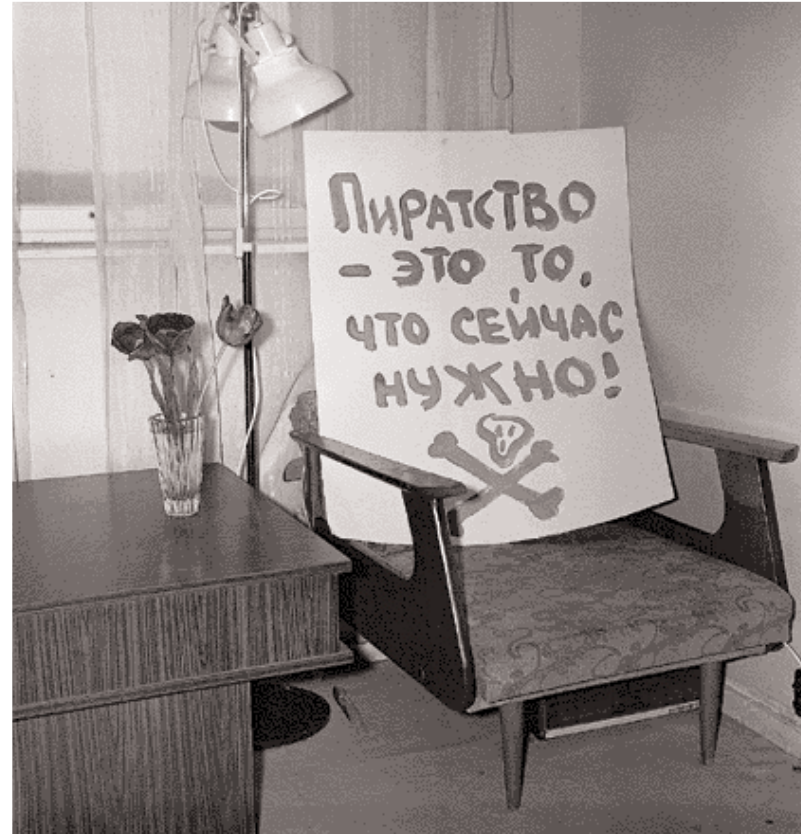 ПИРАТСТВО
- ЭТО ТО,
ЧТО СЕЙЧАС
НУЖНО!